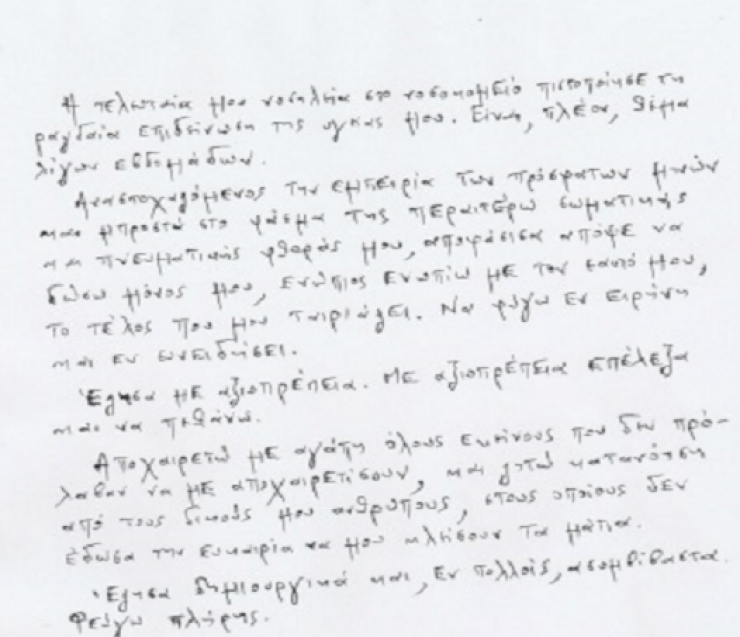 Η τελευταία μου νοσηλεία στο νοσοκομείο πιστοποίησε τη
ραγδαία επιδείνωση της υγείας μου. Είναι, πλέον, θέμα
λίγων εβδομάδων.
Αναστοχαζόμενος την εμπειρία των πρόσφατων μηνών
και μπροστά στο φάσμα της περαιτέρω σωματικής
και πνευματικής φθοράς μου, αποφάσισα απόψε να
δώσω μόνος μου, ενώπιος ενωπίω με τον εαυτό μου,
το τέλος που μου ταιριάζει. Να φύγω εν ειρήνη
και εν συνειδήσει.
Έζησα με αξιοπρέπεια. Με αξιοπρέπεια επέλεξα
και να πεθάνω.
Αποχαιρετώ με αγάπη όλους εκείνους που δεν πρό-
λαβαν να με αποχαιρετίσουν, και ζητώ κατανόηση
από τους δικούς μου ανθρώπους, στους οποίους δεν
έδωσα την ευκαιρία να μου κλείσουν τα μάτια.
Έζησα δημιουργικά και, εν πολλοίς, ασυμβίβαστα.
Φεύγω πλήρης.